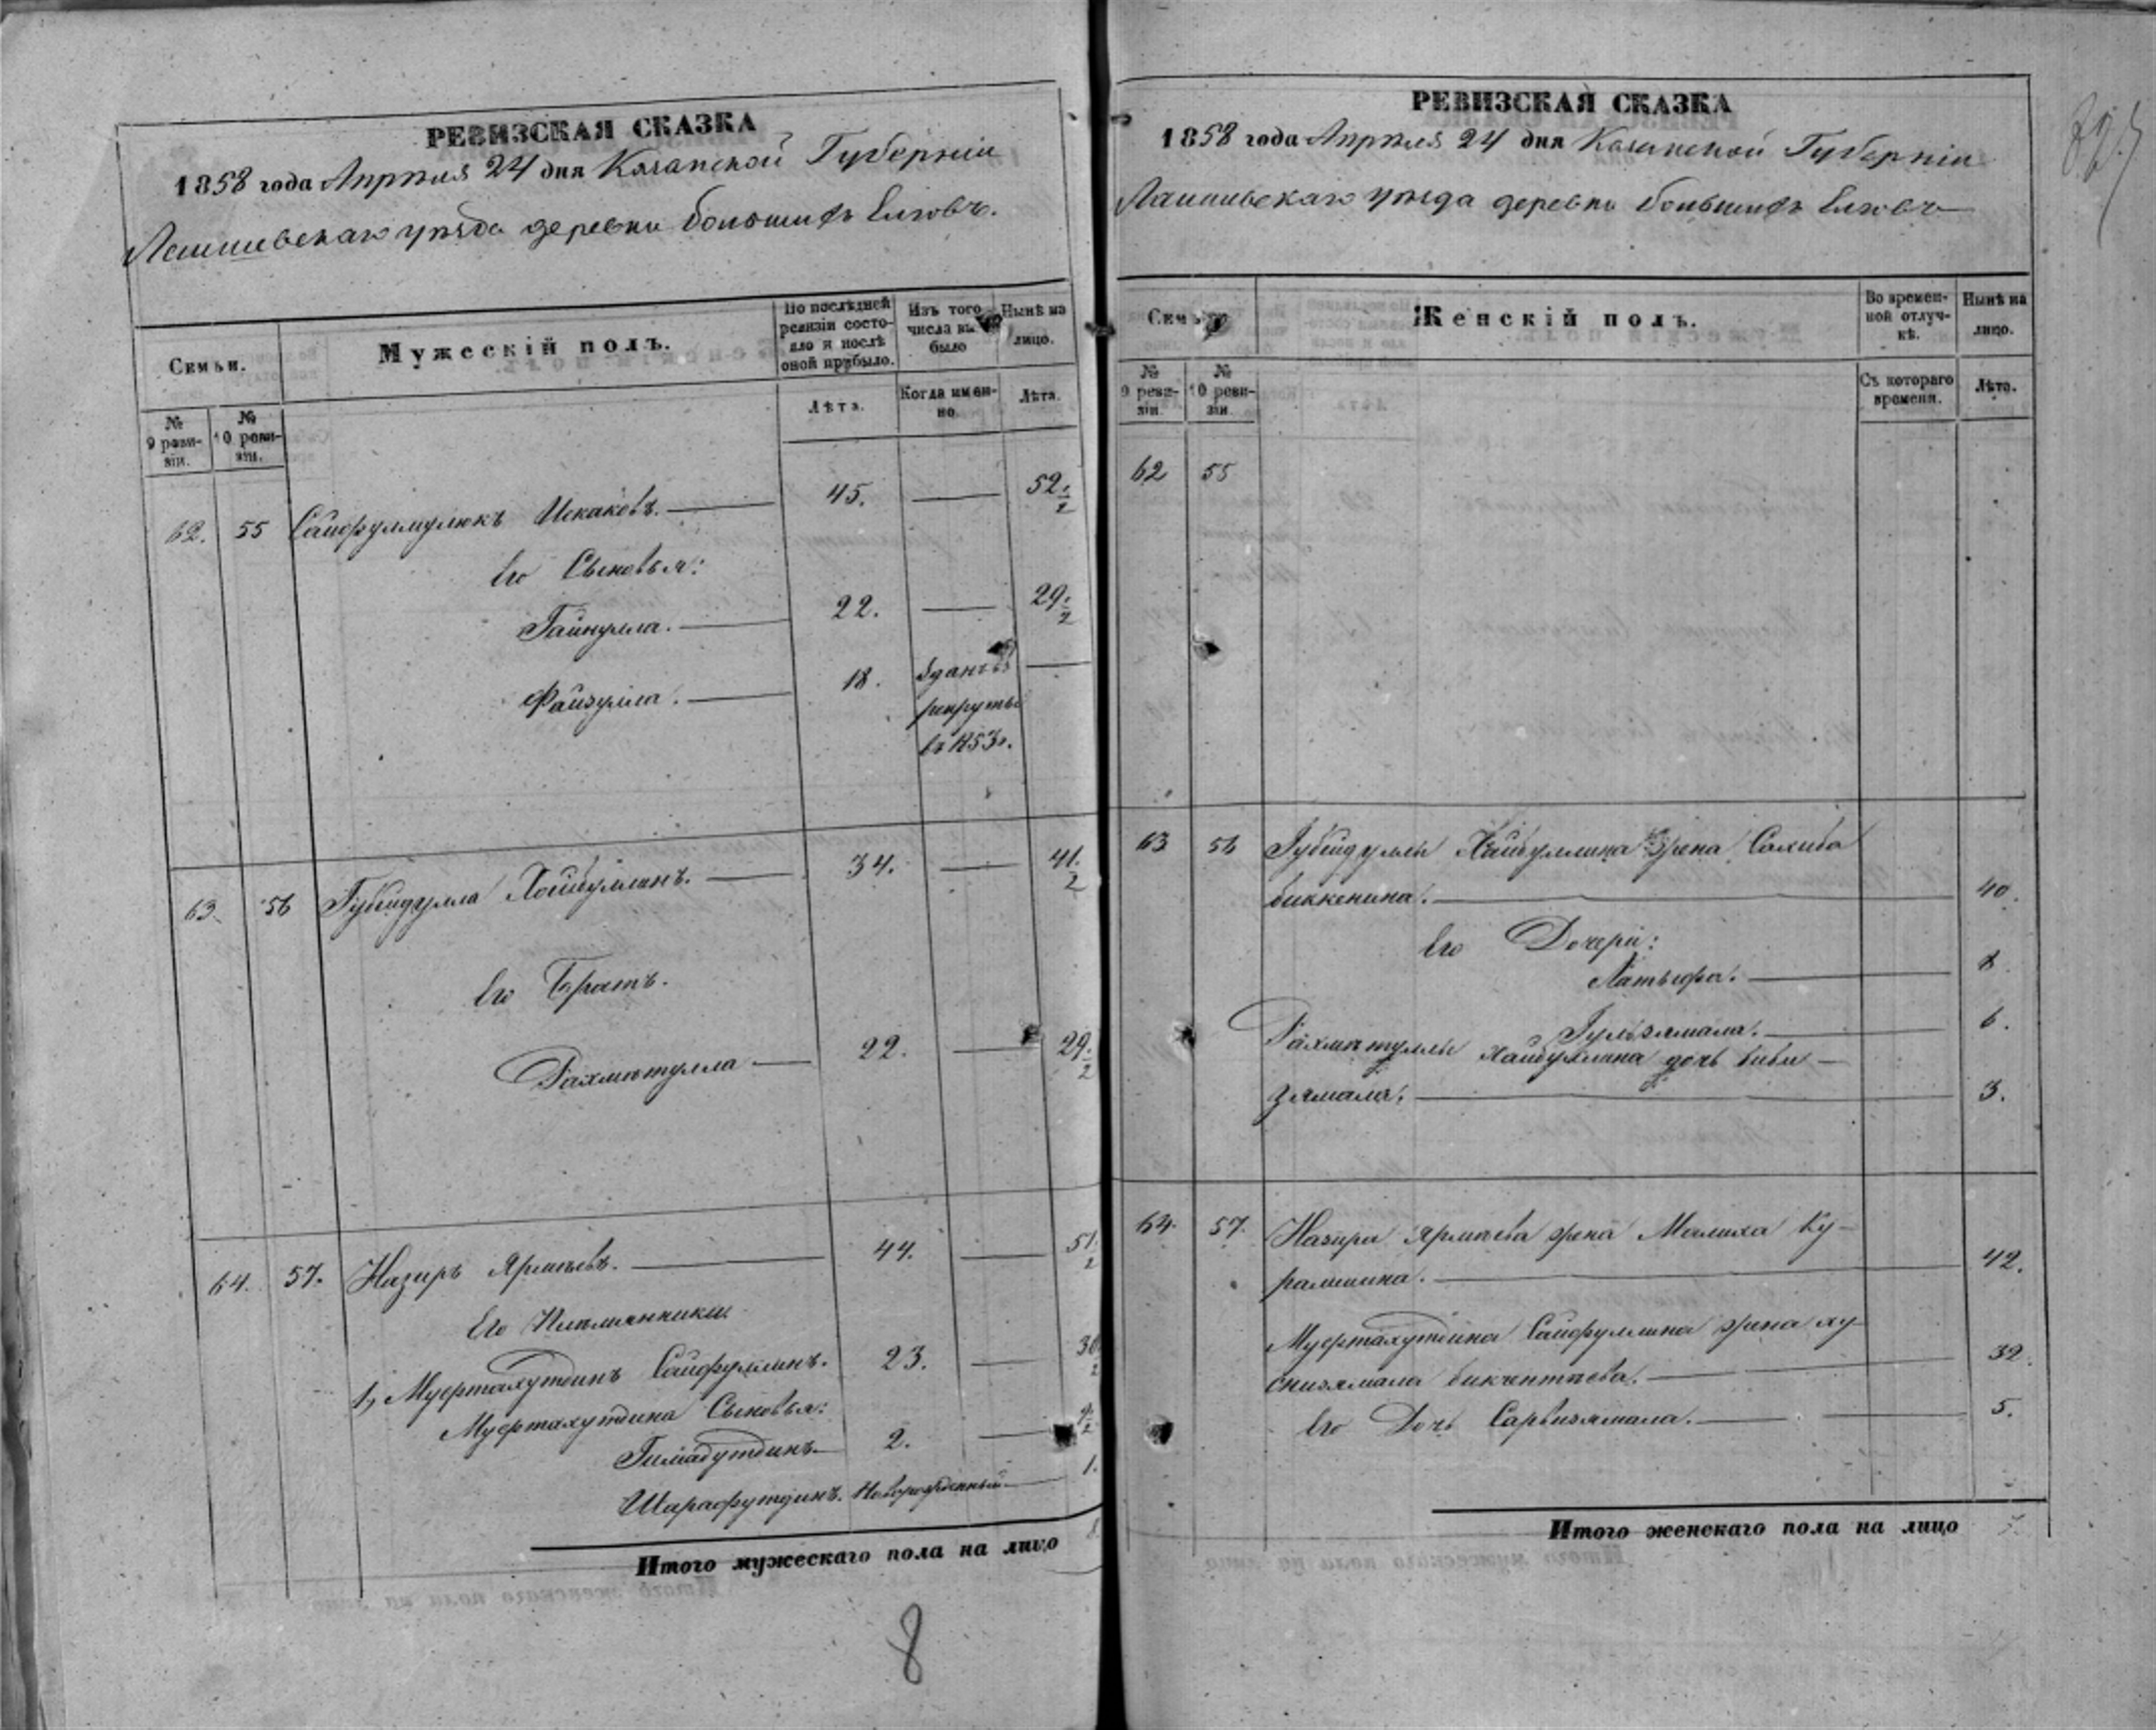 РЕВИЗСКАЯ СКАЗКА
1858 года Апрѣля 24 дня Казанской Губерніи
Лаишевскаго уѣзда деревни большихъ Елговъ.
Семьи.
Мужескій полъ.
По послѣдней ревизіи состояло и послѣ оной прибыло.
Изъ того числа выбыло
Нынѣ на лицо.
№ 9 ревизіи.
№ 10 ревизіи.
Лѣта.
Когда именно.
Лѣта.
62. 55 Сайфулмулюкъ Искаковъ. 45. — 52 1/2
Его Сыновья:
Гайнулла. 22. — 29 1/2
Файзулла. 18. Сданъ въ —
рекруты
въ 1853 г.
63. 56 Губейдулла Хайбуллинъ. 34. — 41 1/2
Его Братъ.
Рахматулла — 22. — 29 1/2
64. 57. Назиръ Ярмаевъ. 44. — 51 1/2
Его Племянники
1, Муфтахутдинъ Сайфуллинъ. 23. — 30 1/2
Муфтахутдина Сыновья:
Гимадутдинъ. 2. — 9 1/2
Шарафутдинъ. Новорожденный — 1.
Итого мужескаго пола на лицо 8
8
РЕВИЗСКАЯ СКАЗКА
1858 года Апрѣля 24 дня Казанской Губерніи
Лаишевскаго уѣзда деревни большихъ Елговъ
Семьи
Женскій полъ.
Во временной отлучкѣ.
Нынѣ на лицо.
№ 9 ревизіи.
№ 10 ревизіи.
Съ котораго времени.
Лѣта.
62 55
63 56 Губейдуллы Хайбуллина жена Сахиба
биккенина. 40.
Его Дочери:
Латыфа. 8.
Гульзямала. 6.
Рахматуллы Хайбуллина дочь биби-
зямала. 3.
64. 57. Назира Ярмаева жена Малиха Ку-
рамшина. 42.
Муфтахутдина Сайфуллина жена ху-
снизямала бикчентаева. 32.
Его Дочь Сарвизямала. 5.
Итого женскаго пола на лицо 7.